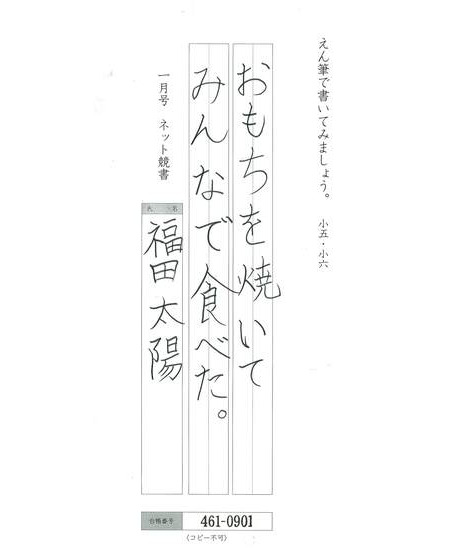 えん筆で書いてみましょう。 小五・小六
おもちを焼いて
みんなで食べた。
一月号 ネット競書
氏 名
福田太陽
台帳番号 461-0901
(コピー不可)